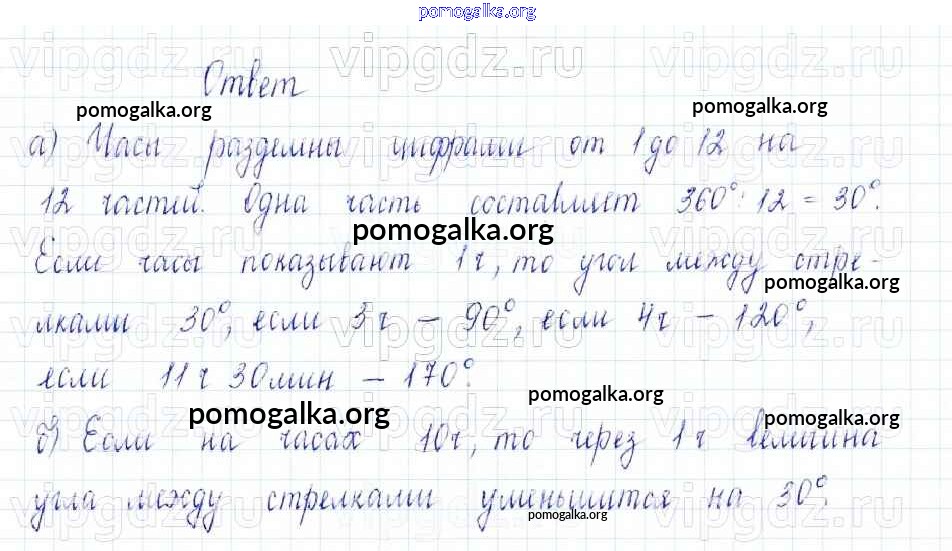 pomogalka.org
vipgdz.ru vipgdz.ru vipgdz.ru
Ответ
pomogalka.org pomogalka.org
а) Часы разделены цифрами от 1 до 12 на
12 частей. Одна часть составляет 360° : 12 = 30°.
pomogalka.org
Если часы показывают 1 ч, то угол между стре-
pomogalka.org
лками 30°, если 3 ч – 90°, если 4 ч – 120°,
если 11 ч 30 мин – 170°.
pomogalka.org pomogalka.org pomogalka.org
б) Если на часах 10 ч, то через 1 ч величина
угла между стрелками уменьшится на 30°.
pomogalka.org